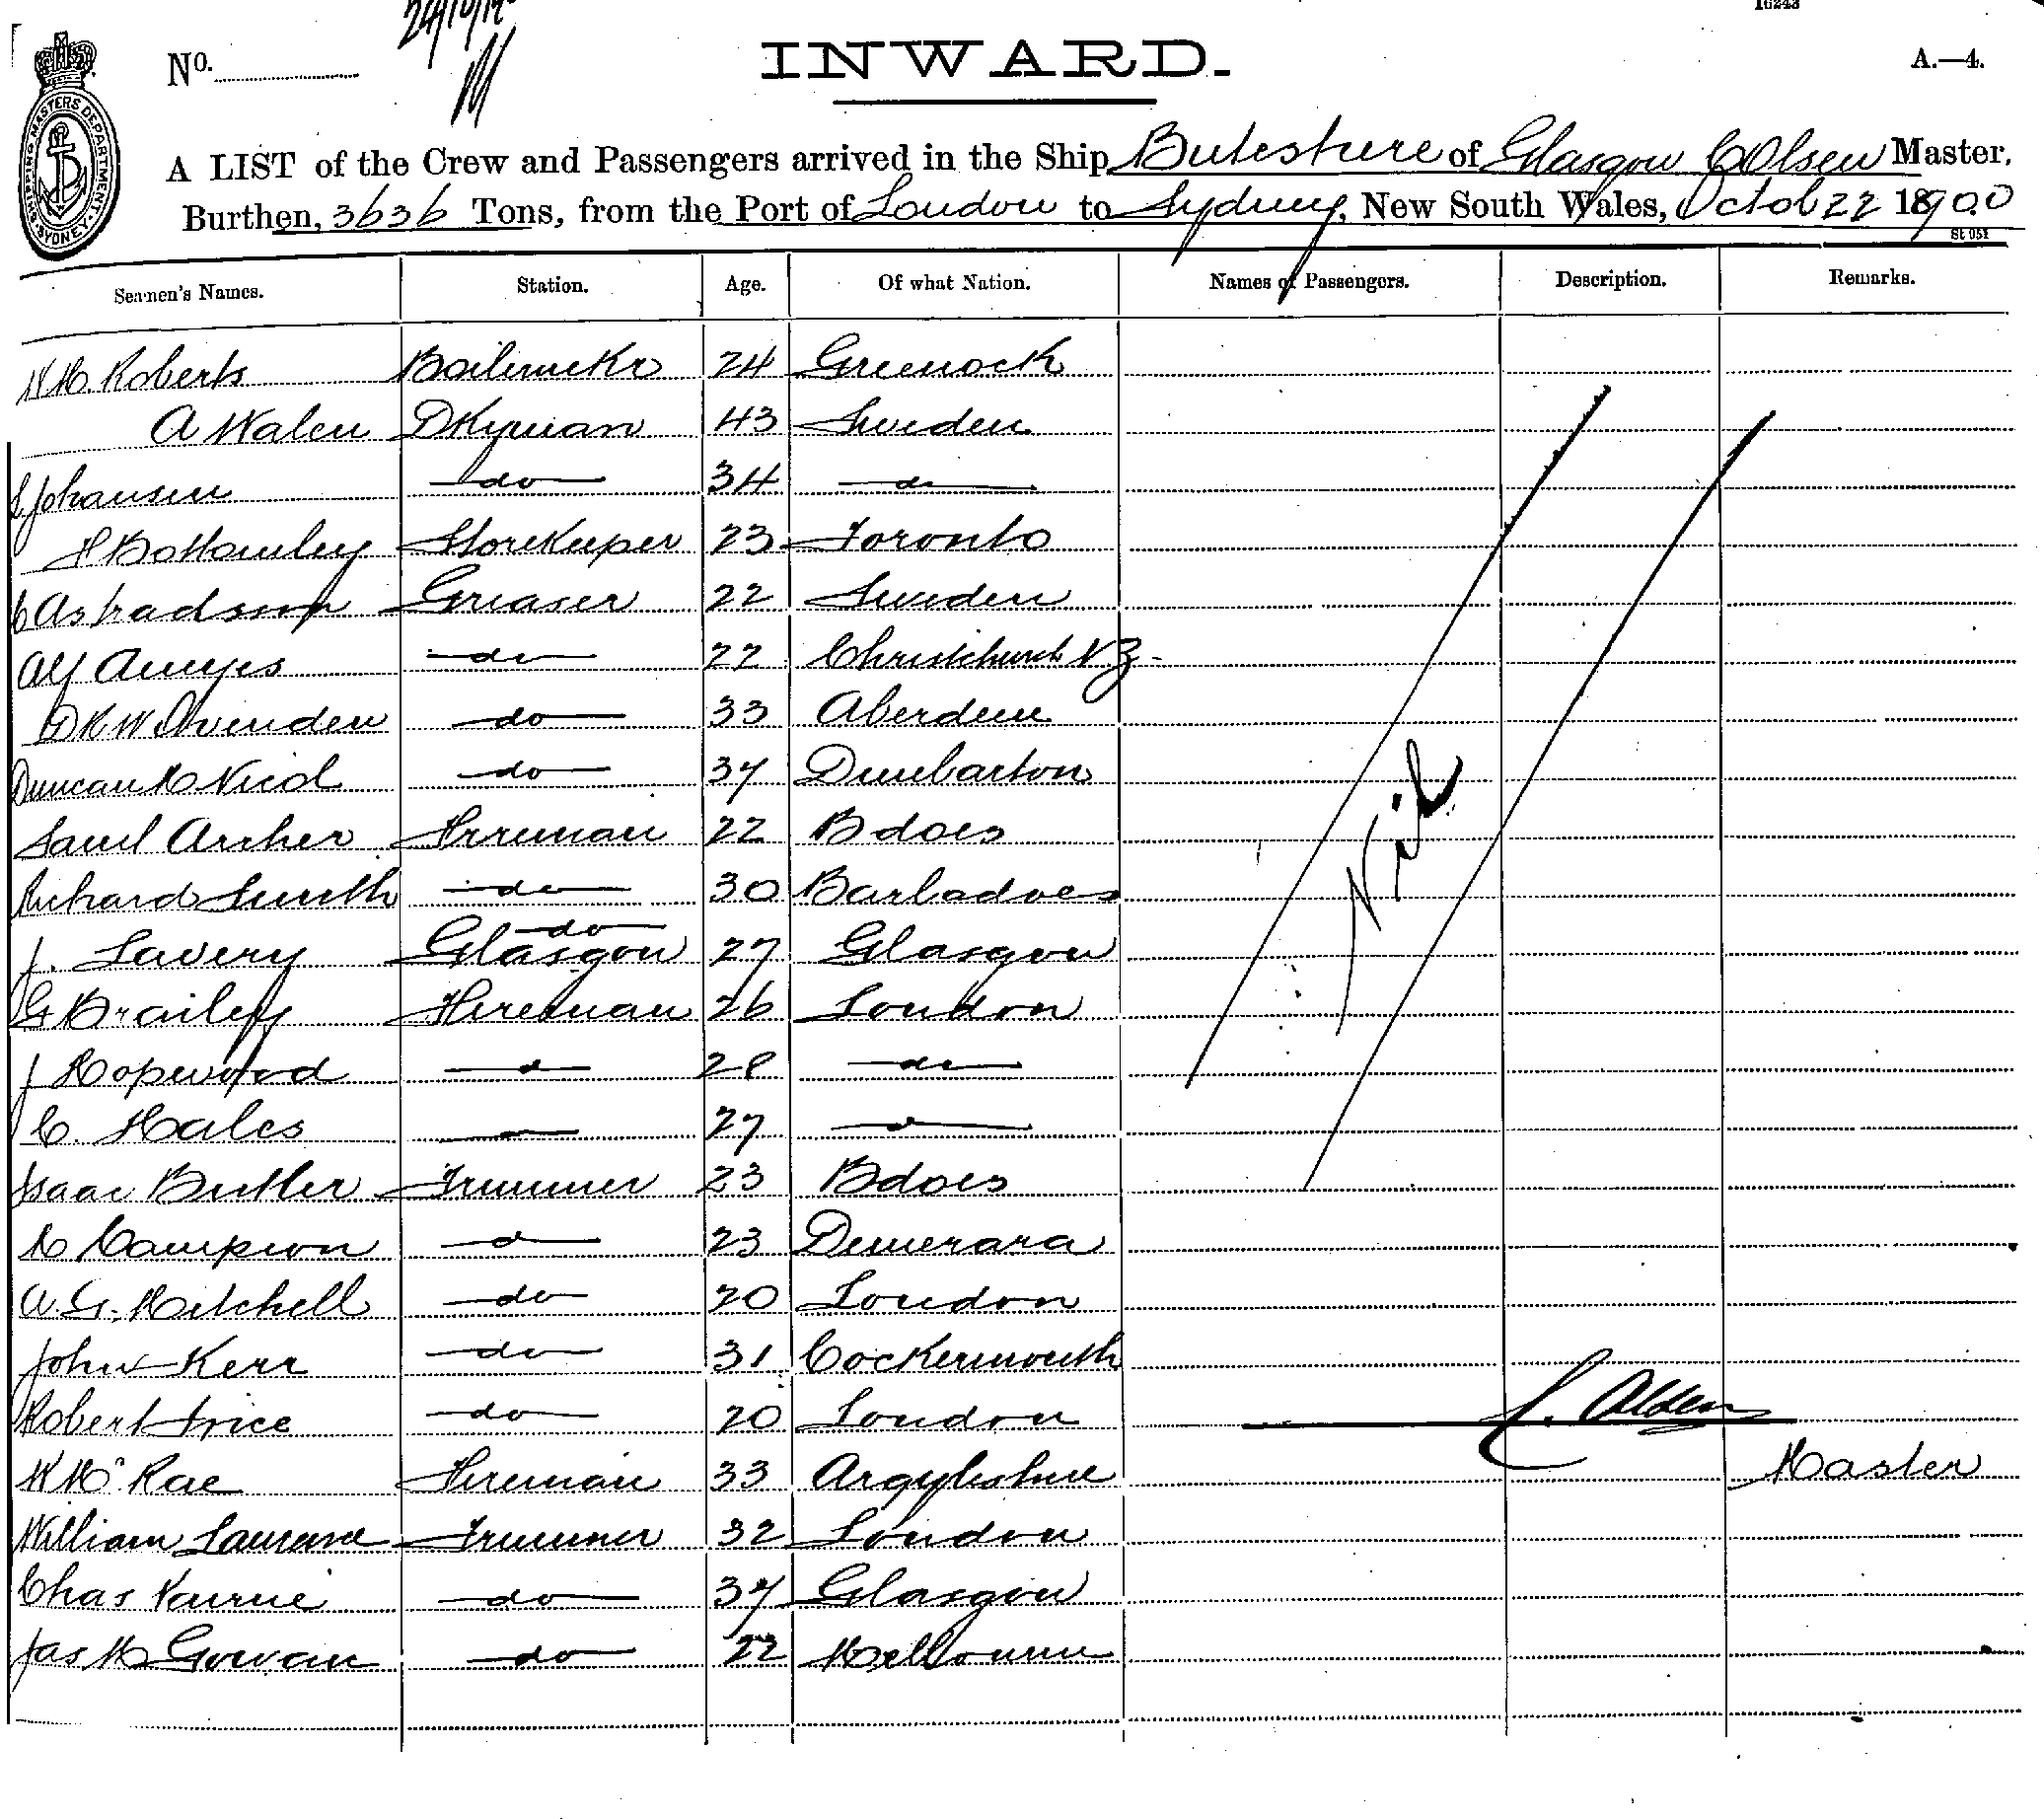 16243
24/10/19
No.
INWARD.
A.—4.
SHIPPING MASTERS DEPARTMENT SYDNEY
A LIST of the Crew and Passengers arrived in the Ship Buteshire of Glasgow C Olsen Master,
Burthen, 3636 Tons, from the Port of London to Sydney, New South Wales, Octob 22 1900
St 051
Seamen's Names. Station. Age. Of what Nation. Names of Passengers. Description. Remarks.
Roberts 24 Greenock
A Walen Dkyman 43 Sweden
Johansen do 34 do
H Bottomley Storekeeper 23 Toronto
C Astradsson Greaser 22 Sweden
Alf Amyes do 22 Christchurch N.Z.
do 33 Aberdeen
Duncan McNicol do 37 Dumbarton
Saml Archer Fireman 22 Bdoes
Richard Smith do 30 Barbadoes
do
J. Lavery Glasgow 27 Glasgow
G Brailey Fireman 26 London
J Hopwood d 28 do
C. Hales 27 d
Isaac Butler Trimmer 23 Bdoes
Campion d 23 Demerara
A. G. Mitchell do 20 London
John Kerr do 31 Cockermouth
Robert Price do 20 London
W McRae Fireman 33 Argyleshire
William Laurence Trimmer 32 London
Chas do 37 Glasgow
Jas McGowan do 22 Melbourne
Nil
C. Olsen
Master